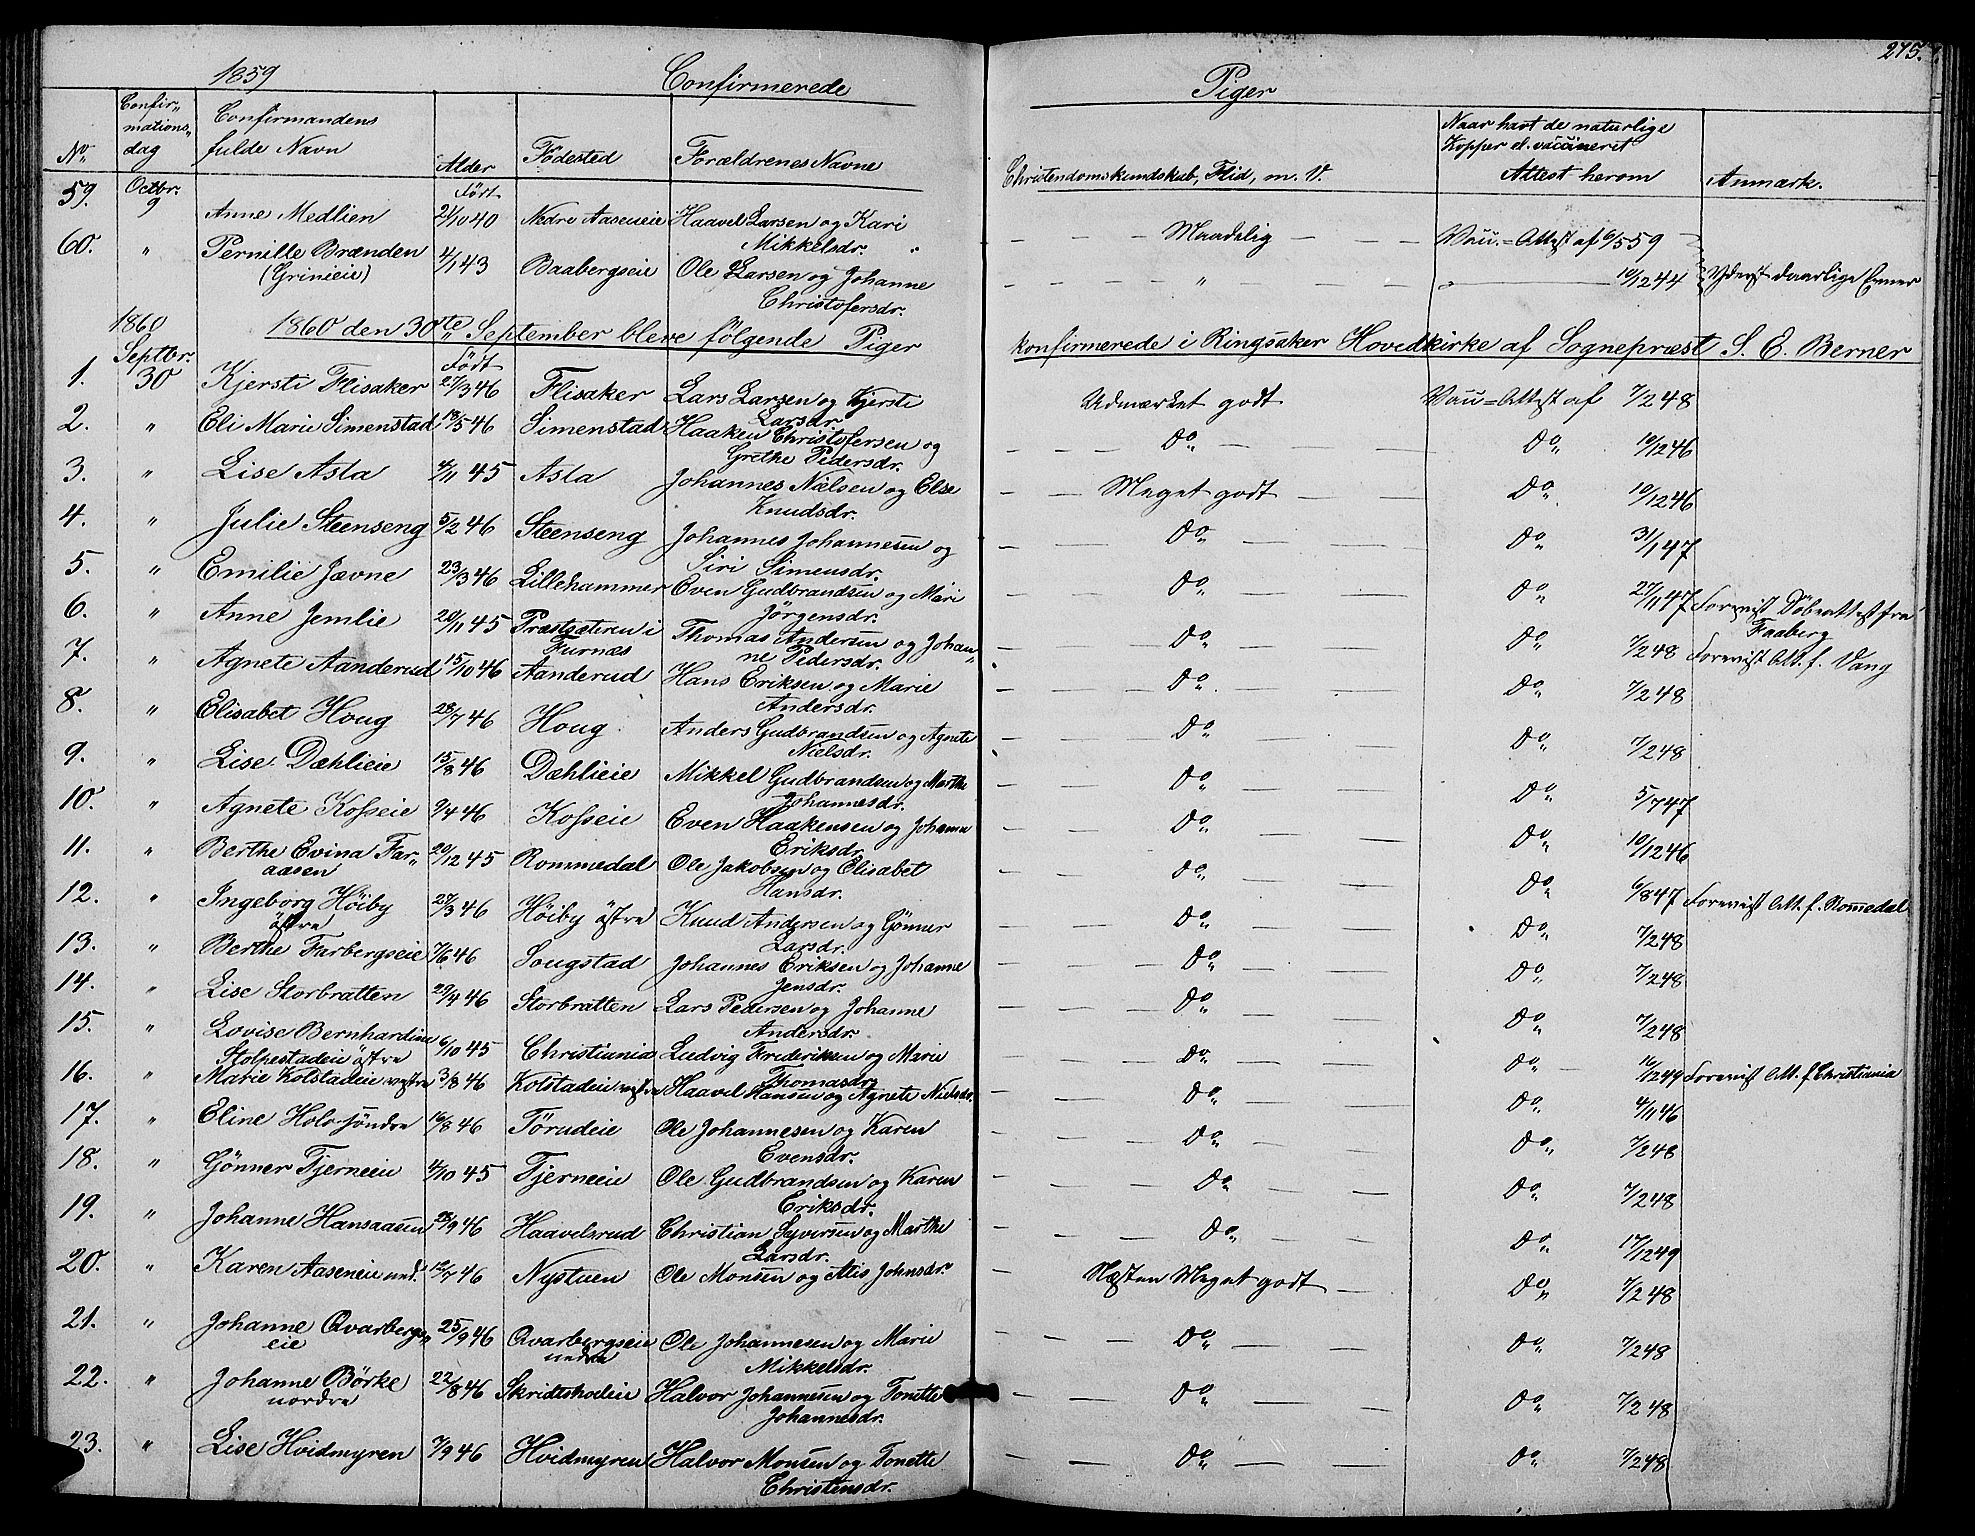 275.
1859 Confirmerede Piger
No. Confirmations dag Confirmandens fulde Navn Alder Födested Forældrenes Navne Christendomskundskab, Flid, m. V. Naar havt de naturlige Kopper el. vaccineret Attest herom Anmærk.
59. Octbr. 9 Anne Medlien Födt 21/10 40 Nedre Aaseneie Haavel Larsen og Kari Maadelig Vac.=Attest af 6/5 59
Mikkelsdr.
60. " Pernille Brænden 4/1 43 Baabergseie Ole Larsen og Johanne " 10/12 44 Yderst daarlige Evner
(Grinieie) Christofersdr.
1860 1860 den 30te September bleve følgende Piger konfirmerede i Ringsaker Hovedkirke af Sognepræst S. E. Berner
Septbr. Födt
1. 30 Kjersti Flisaker 27/3 46 Flisaker Lars Larsen og Kjersti Udmærket godt Vac=Attest af 7/2 48
Larsdr.
2. " Eli Marie Simenstad 18/5 46 Simenstad Haaken Christofersen og Do. Do. 10/12 46
Grethe Pedersdr.
3. " Lise Asla 4/11 45 Asla Johannes Nielsen og Else Meget godt Do. 10/12 46
Knudsdr.
4. " Julie Steenseng 5/2 46 Steenseng Johannes Johannesen og Do. Do. 31/1 47
Siri Simensdr.
5. " Emilie Jevne 23/3 46 Lillehammer Even Gudbrandsen og Mari Do. Do. 27/11 47 Forevist Döbeattest fra
Jörgensdr. Faaberg
6. " Anne Jemlie 20/11 45 Præstsæteren i Thomas Andersen og Johan- Do. Do. 7/2 48 Forevist Att. f. Vang
Furnæs ne Pedersdr.
7. " Agnete Aanderud 15/10 46 Aanderud Hans Eriksen og Marie Do. Do. 7/2 48
Andersdr.
8. " Elisabet Houg 28/7 46 Houg Anders Gudbrandsen og Agnete Do. Do. 7/2 48
Nielsdr.
9. " Lise Dæhlieie 15/8 46 Dæhlieie Mikkel Gudbrandsen og Marthe Do. Do. 5/7 47
Johannesdr.
10. " Agnete Kosseie 9/4 46 Kosseie Even Haakensen og Johanne Do. Do. 10/12 46
Eriksdr.
11. " Berthe Evina Far- 20/12 45 Rommedal Ole Jakobsen og Elisabet Do. Do. 6/8 47 Forevist Att. f. Romedal
aasen Hansdr.
12. " Ingeborg Höiby 27/3 46 Höiby östre Knud Andersen og Gönner Do. Do. 7/2 48
östre Larsdr.
13. " Berthe Farbergseie 7/6 46 Sougstad Johannes Eriksen og Johanne Do. Do. 7/2 48
Jensdr.
14. " Lise Storbratten 29/4 46 Storbratten Lars Pedersen og Johanne Do. Do. 7/2 48
Andersdr.
15. " Lovise Bernhardine 6/10 45 Christiania Ludvig Frederiksen og Marie Do. Do. 16/12 49 Forevist Att. f Christiania
Stolpestadeie östre Thomasdr.
16. " Marie Kolstadeie vestre 3/8 46 Kolstadeie vestre Haavel Hansen og Agnete Nielsdr. Do. Do. 4/11 46
17. " Eline Holo söndre 16/8 46 Törudeie Ole Johannesen og Karen Do. Do. 7/2 48
Evensdr.
18. " Gönner Tjerneeie 4/10 45 Tjerneeie Ole Gudbrandsen og Karen Do. Do. 7/2 48
Eriksdr.
19. " Johanne Hansaasen 28/9 46 Haavelsrud Christian Syversen og Marthe Do. Do. 17/12 49
Larsdr.
20. " Karen Aaseneie ned. 12/7 46 Nystuen Ole Monsen og Alis Johnsdr. Næsten Meget godt Do. 7/2 48
21. " Johanne Qvarbergs- 25/9 46 Qvarbergseie Ole Johannesen og Marie Do. Do. 7/2 48
eie nedre Mikkelsdr.
22. " Johanne Börke 22/8 46 Skridtshoeie Halvor Johannesen og Tonette Do. Do. 7/2 48
nordre Johannesdr.
23. " Lise Hvidmyren 7/9 46 Hvidmyren Halvor Monsen og Tonette Do. Do. 7/2 48
Christensdr.